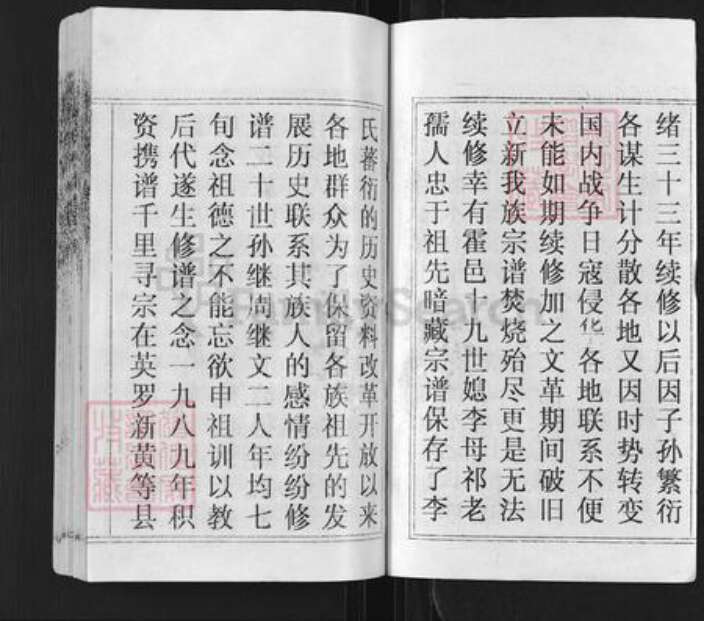 绪三十三年续修以后因子孙繁衍
各谋生计分散各地又因时势转变
国内战争日寇侵化各地联系不便
未能如期续修加之文革期间破旧
立新我族宗谱焚烧殆尽更是无法
续修幸有霍邑十九世媳李母祁老
孺人忠于祖先暗藏宗谱保存了李
氏蕃衍的历史资料改革开放以来
各地群众为了保留各族祖先的发
展历史联系其族人的感情纷纷修
谱二十世孙继周继文二人年均七
旬念祖德之不能忘欲申祖训以教
后代遂生修谱之念一九八九年积
资携谱千里寻宗在英罗新黄等县
FamilySearch